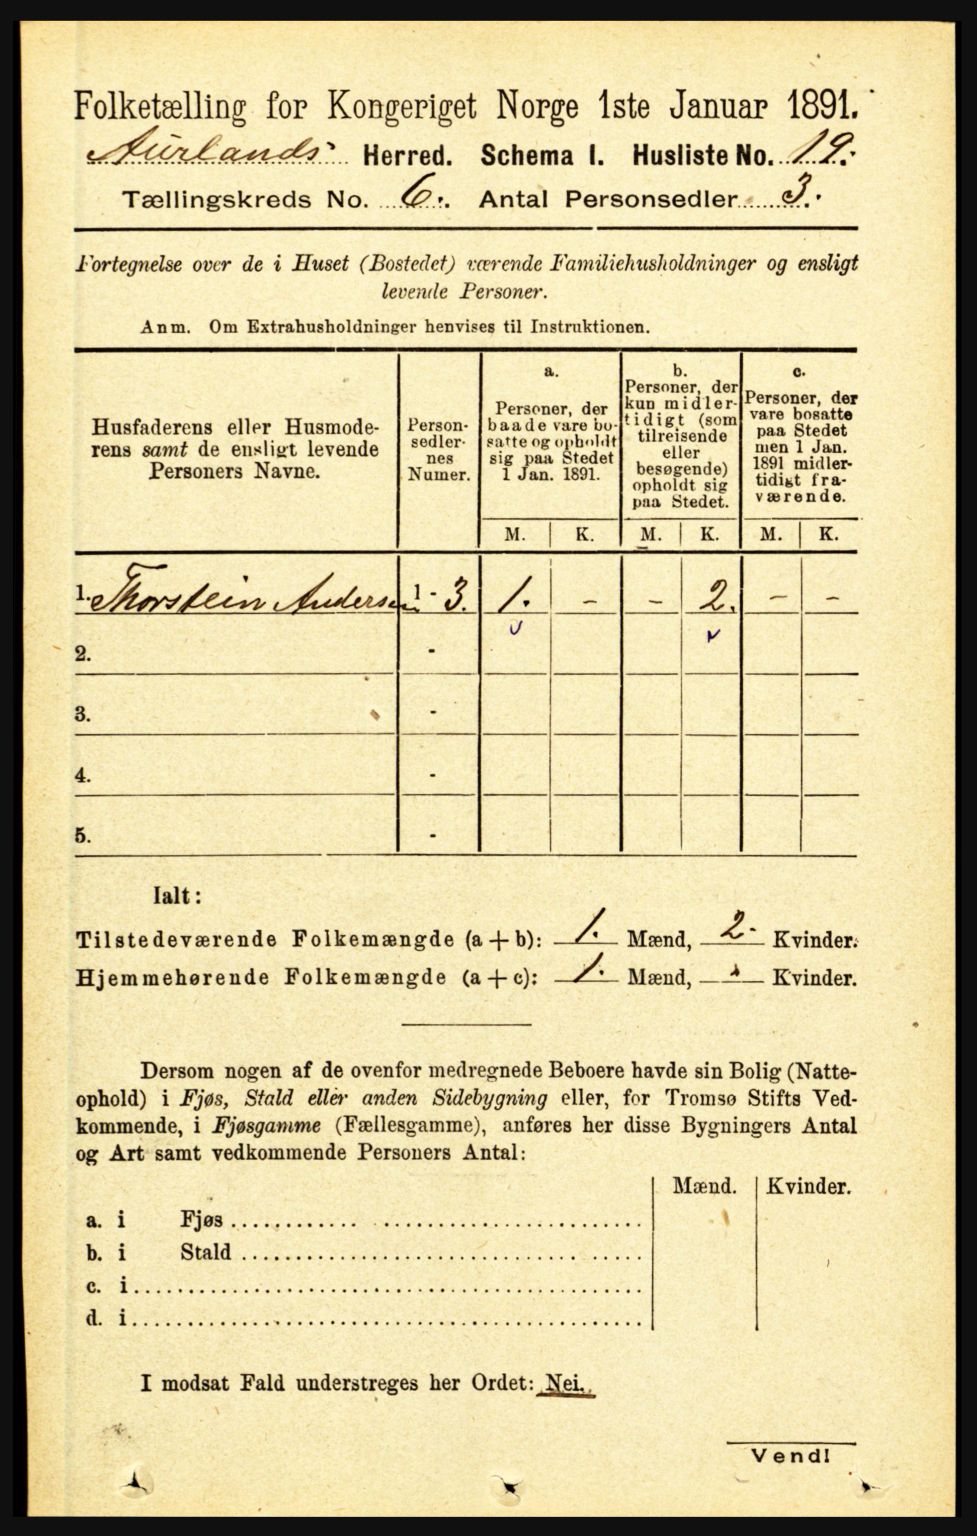 Folketælling for Kongeriget Norge 1ste Januar 1891.
Aurlands Herred. Schema I. Husliste No. 19.
Tællingskreds No. 6. Antal Personsedler 3.
Fortegnelse over de i Huset (Bostedet) værende Familiehusholdninger og ensligt
levende Personer.
Anm. Om Extrahusholdninger henvises til Instruktionen.
Husfaderens eller Husmode-
rens samt de ensligt levende
Personers Navne.
Person-
sedler-
nes
Numer.
a.
Personer, der
baade vare bo-
satte og opholdt
sig paa Stedet
1 Jan. 1891.
b.
Personer, der
kun midler-
tidigt (som
tilreisende
eller
besøgende)
opholdt sig
paa Stedet.
c.
Personer, der
vare bosatte
paa Stedet
men 1 Jan.
1891 midler-
tidigt fra-
værende.
M. K. M. K. M. K.
1. Thorstein Andersen 1 - 3. 1. - - 2. - -
2. -
3. -
4. -
5. -
Ialt:
Tilstedeværende Folkemængde (a + b): 1. Mænd, 2. Kvinder.
Hjemmehørende Folkemængde (a + c): 1. Mænd, Kvinder.
Dersom nogen af de ovenfor medregnede Beboere havde sin Bolig (Natte-
ophold) i Fjøs, Stald eller anden Sidebygning eller, for Tromsø Stifts Ved-
kommende, i Fjøsgamme (Fællesgamme), anføres her disse Bygningers Antal
og Art samt vedkommende Personers Antal:
Mænd. Kvinder.
a. i Fjøs
b. i Stald
c. i
d. i
I modsat Fald understreges her Ordet: Nei.
Vend!